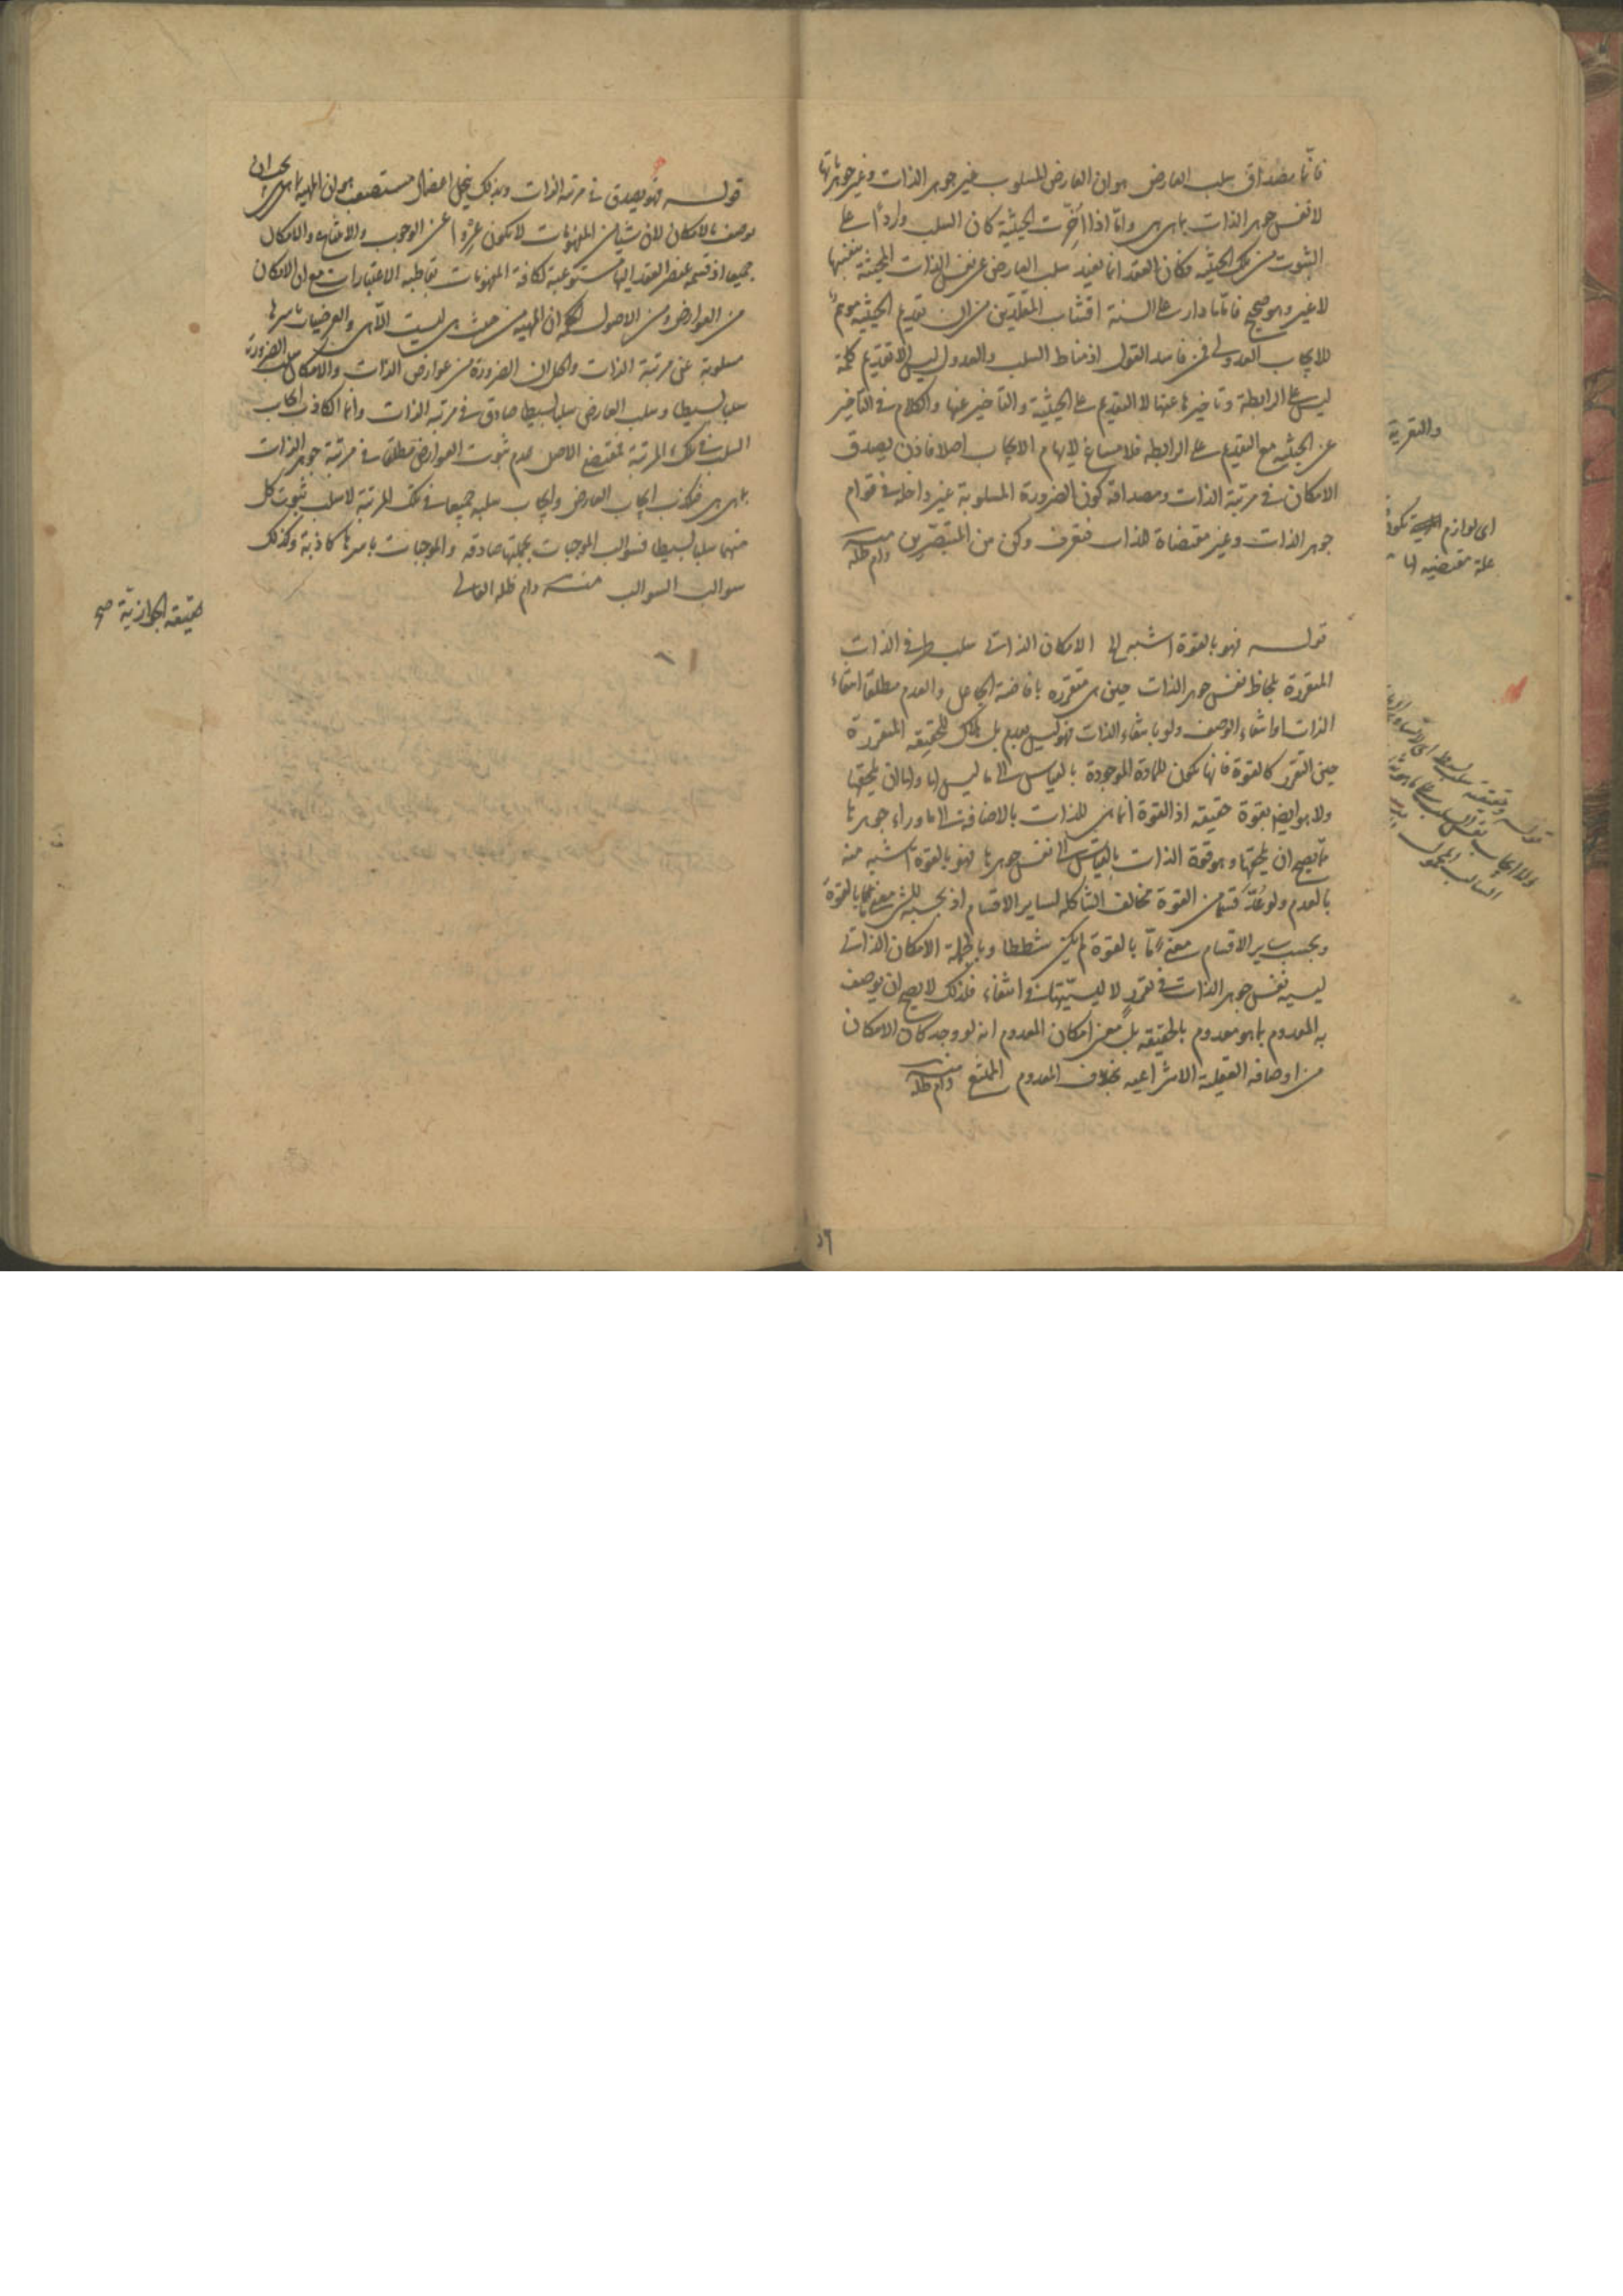 فانما مصداق سلب العارض هو ان العارض المسلوب غير جوهر الذات وغير جوهرياتها
لا نفس جوهر الذات بما هى هى واما اذا اُخّرت الحيثية كان السلب واردًا على
الثبوت من تلك الحيثية فكان العقد انما يفيد سلب العارض عن نفس الذات المحيثة بنفسها
لا غير وهو صحيح فاما ما دار على السنة اقشاب المقلّدين من ان تقديم الحيثية موهم
للايجاب العدولى فمن فاسد القول اذ مناط السلب والعدول ليس الا تقديم كلمة
ليس على الرابطة وتاخيرها عنها لا التقديم على الحيثية والتأخير عنها والكلام فى التأخير
عن الحيثية مع التقديم على الرابطة فلا مساغ لايهام الايجاب اصلا فاذن يصدق
الامكان فى مرتبة الذات ومصداقه كون الضرورة المسلوبة غير داخلة فى قوام
جوهر الذات وغير مقتضاة للذات فتعرف وكن من المتبصّرين منه دام ظله
قوله فهو بالقوة اشبه الخ الامكان الذاتى سلب بسيط فى الذات
المتقررة بلحاظ نفس جوهر الذات حين هى متقررة بافاضة الجاعل والعدم مطلقا انتفاء
الذات او انتفاء الوصف ولو بانتفاء الذات فهو ليس بعدم بل للحقيقة المتقررة
حين التقرر كالقوة فانها تكون للمادة الموجودة بالقياس الى ما ليس لها ولها ان يلحقها
ولا هو ايضا بقوة حقيقة اذ القوة انما هى للذات بالاضافة الى ما وراء جوهرها
مما يصح ان يلحقها وهو قوة الذات بالقياس الى نفس جوهرها فهو بالقوة اشبه منه
بالعدم ولو عُدّ قسما من القوة مخالف الشاكلة لساير الاقسام اذ بحسبه للشىء معنى ما بالقوة
وبحسب ساير الاقسام معنى ما بالقوة لم يكن شططا وبالجملة الامكان الذاتى
ليسية نفس جوهر الذات فى تقرر لا ليسيّتها فى انتفاء فلذلك لا يصح ان يوصف
به المعدوم بما هو معدوم بالحقيقة بل معنى امكان المعدوم انه لو وجد كان الامكان
من اوصافه العقلية الانتزاعية بخلاف المعدوم الممتنع منه دام ظله
والتقررية
اى لوازم تكون
علة مقتضية لها
٥٦
قوله فهو يصدق فى مرتبة الذات وبذلك ينحل اعضال مستصعب هو ان المهية بما هى هى
يوصف بالامكان لان شيئا من المفهومات لا تكون عِرْوًا عن الوجوب والامتناع والامكان
جميعا اذ قسمة عنصر العقد اليها مستوعبة لكافة المفهومات بقاطبة الاعتبارات مع ان الامكان
من العوارض ومن الاصول ان المهية من حيث هى ليست الا هى والعرضيات باسرها
مسلوبة عن مرتبة الذات والحل ان الضرورة من عوارض الذات والامكان سلب الضرورة
سلبا بسيطا وسلب العارض سلبا بسيطا صادق فى مرتبة الذات وانما الكاذب ايجاب
السلب فى تلك المرتبة لمقتضى الاصل عدم ثبوت العوارض مطلقا فى مرتبة جوهر الذات
بما هى هى فكذب ايجاب العارض وايجاب سلبه جميعا فى تلك المرتبة لا سلب ثبوت كل
منهما سلبا بسيطا فسوالب الموجبات بجملتها صادقة والموجبات باسرها كاذبة وكذلك
سوالب السوالب منه دام ظله العالى
حقيقة الجوازية صح